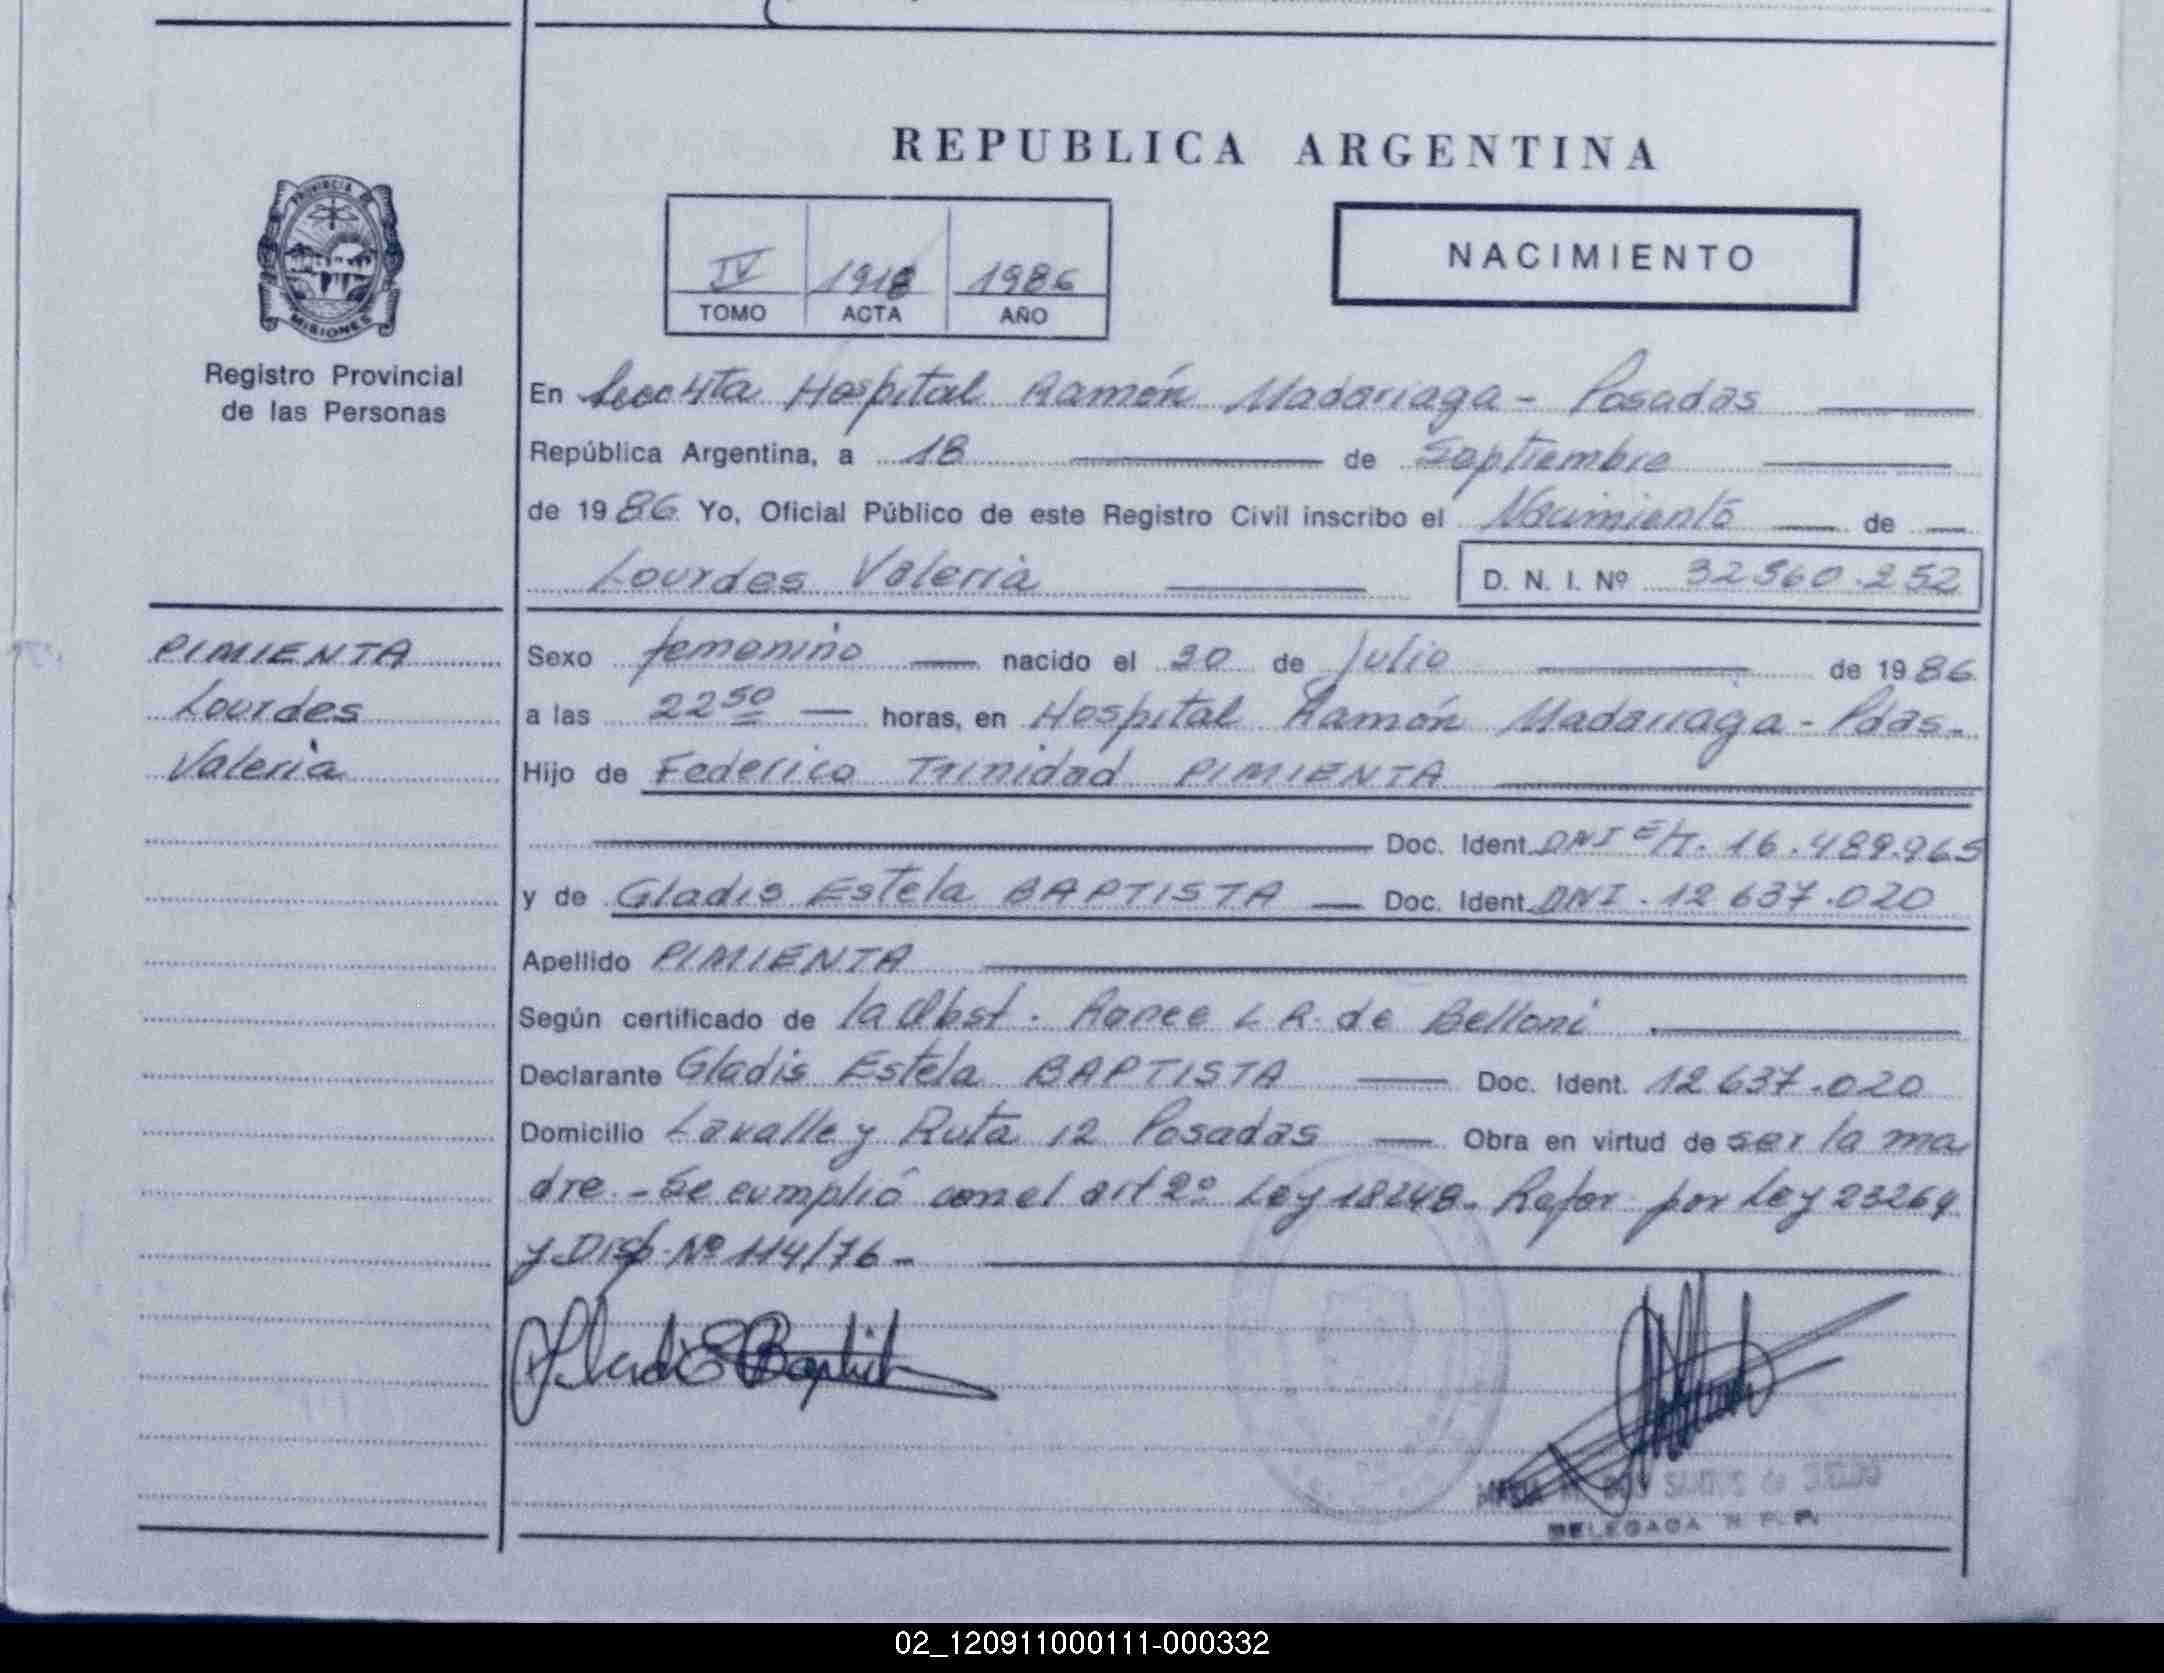 REPUBLICA ARGENTINA
PROVINCIA DE
MISIONES
Registro Provincial
de las Personas
IV 1918 1986
TOMO ACTA AÑO
NACIMIENTO
En Secc 4ta Hospital Ramón Madariaga - Posadas
República Argentina, a 18 de Septiembre
de 1986 Yo, Oficial Público de este Registro Civil inscribo el Nacimiento de
Lourdes Valeria D. N. I. Nº 32560.252
PIMIENTA
Lourdes
Valeria
Sexo femenino nacido el 20 de Julio de 1986
a las 22 50 horas, en Hospital Ramón Madariaga - Pdas-
Hijo de Federico Trinidad PIMIENTA
Doc. Ident. DNI E/T. 16.489.965
y de Gladis Estela BAPTISTA Doc. Ident. DNI. 12 637.020
Apellido PIMIENTA
Según certificado de la Obst. L R. de Belloni
Declarante Gladis Estela BAPTISTA Doc. Ident. 12 637.020
Domicilio Lavalle y Ruta 12 Posadas Obra en virtud de ser la ma
dre - Se cumplió con el art 2º Ley 18248. Refor por Ley 23264
y Disp. Nº 114/76 -
DOS SANTOS de
DELEGADA R. P. P.
02_120911000111-000332